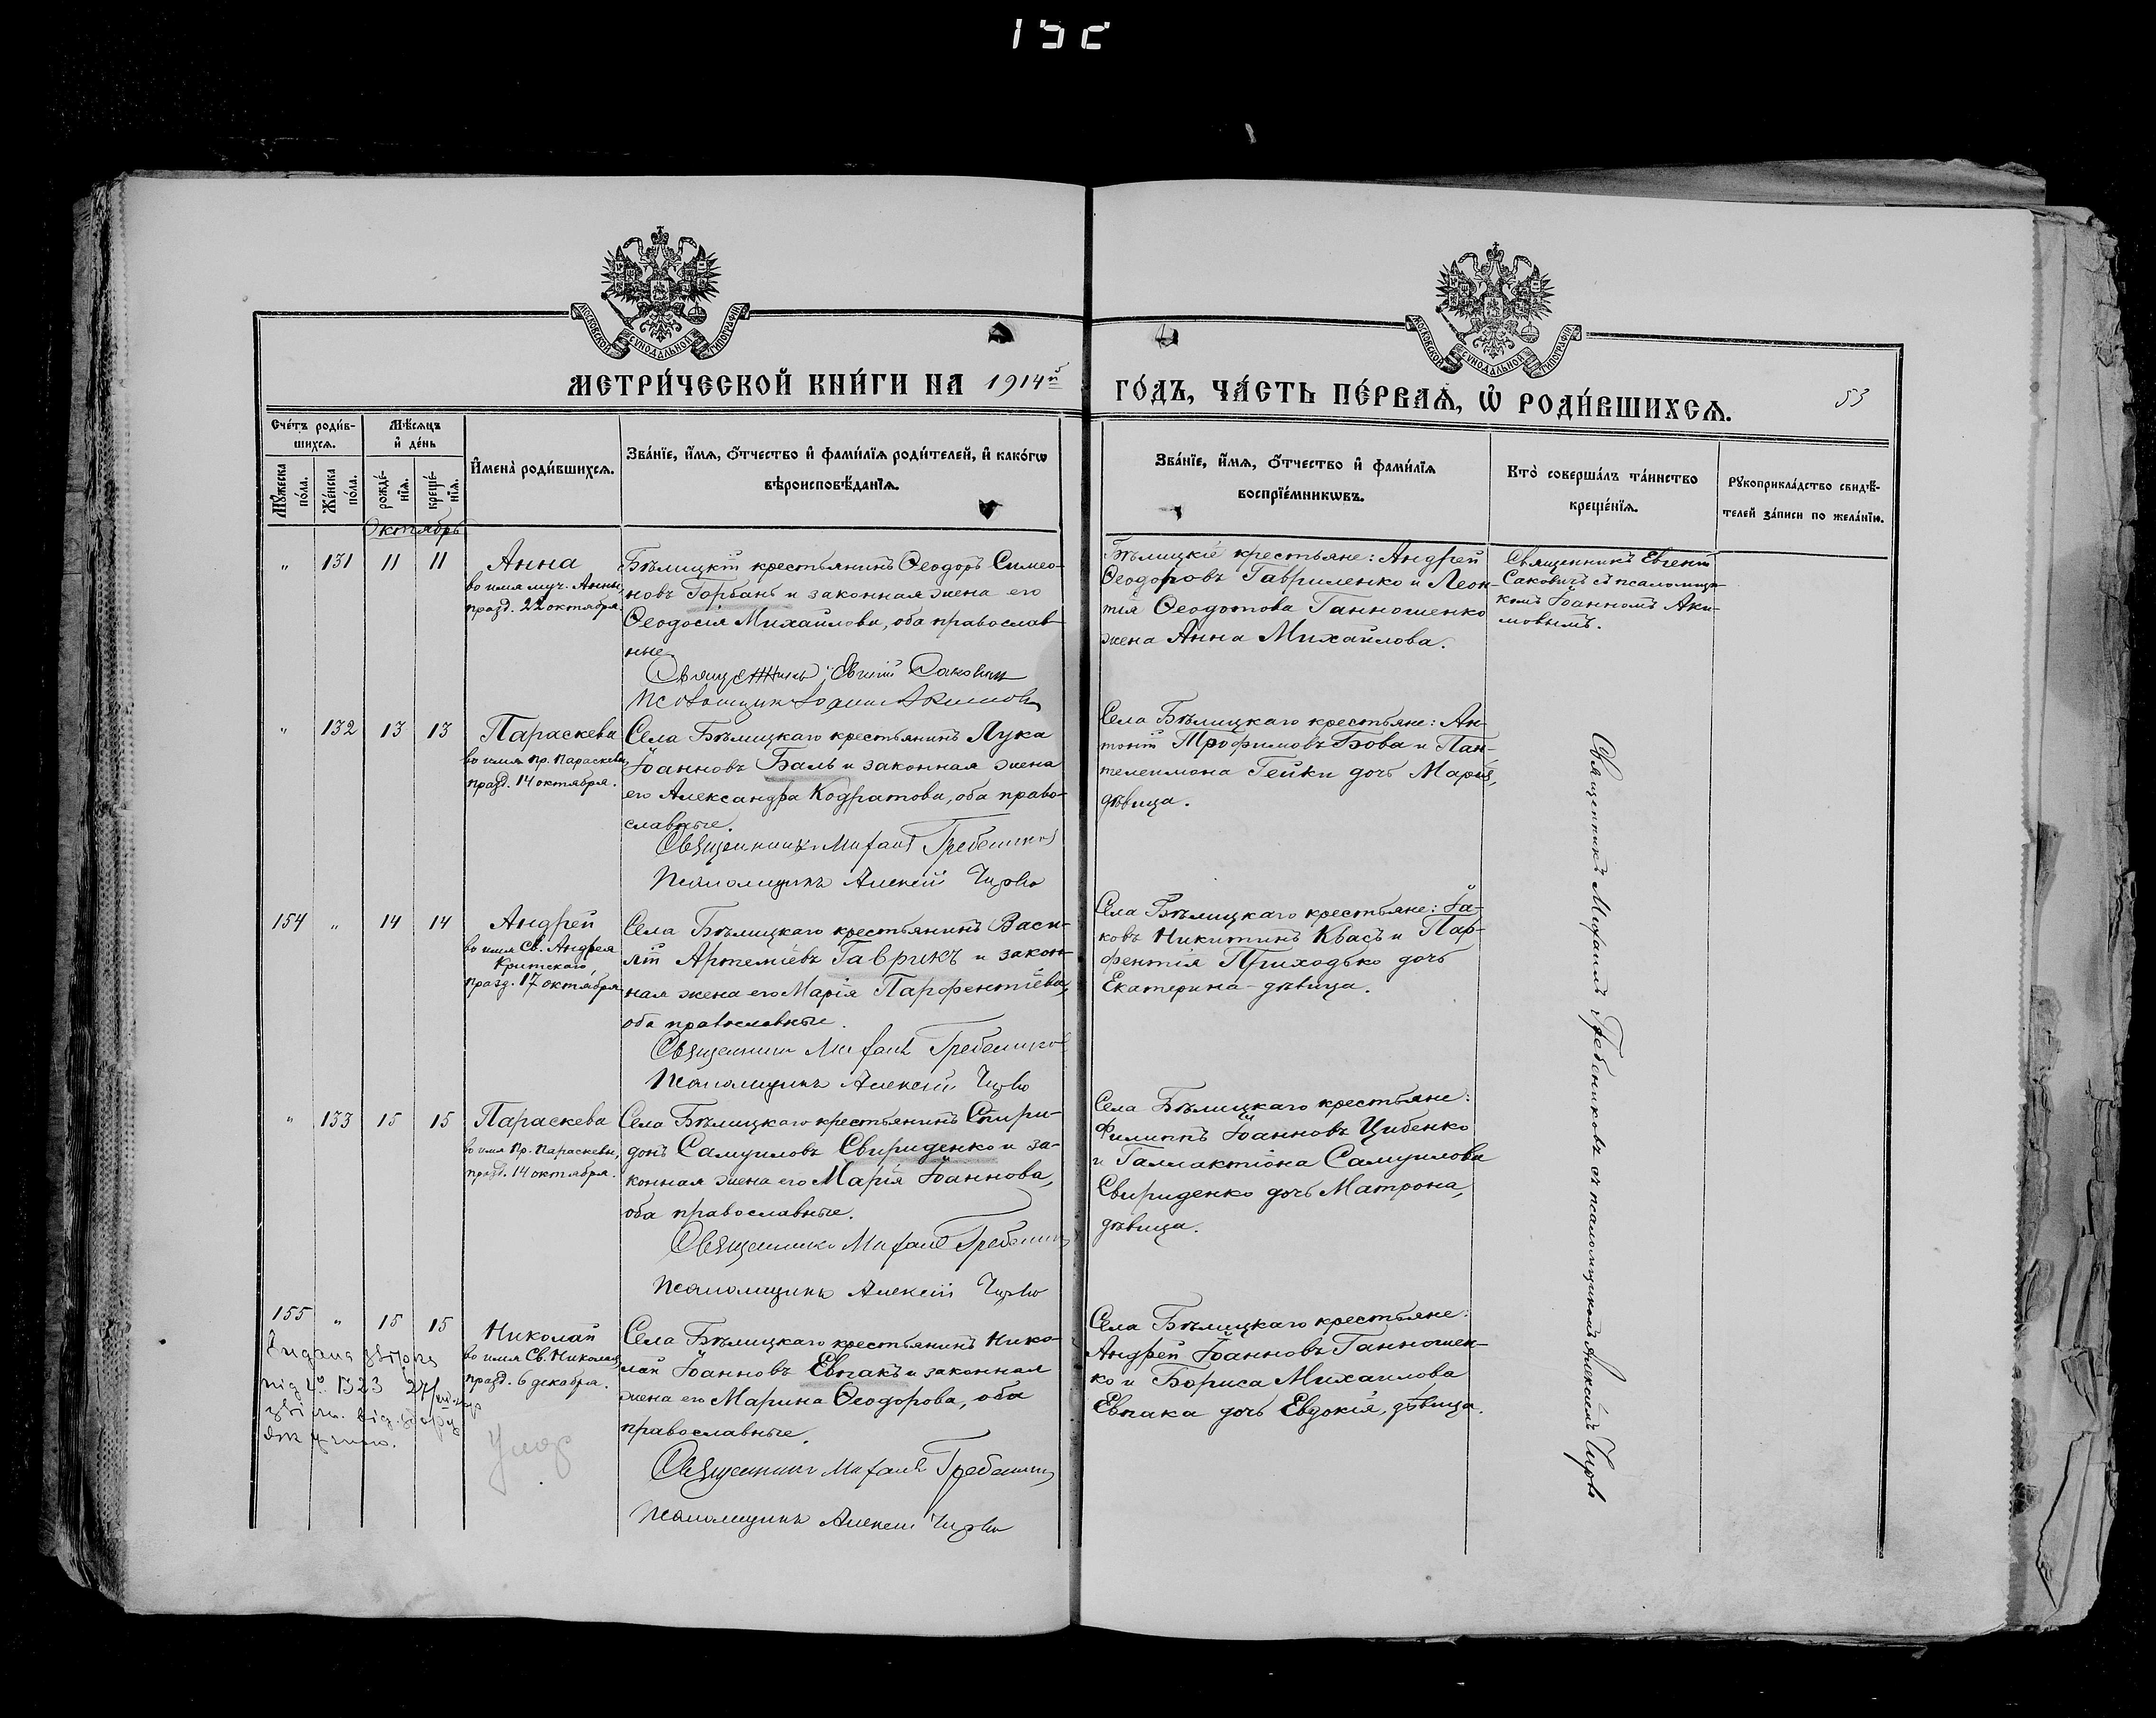 152
МОСКОВСКОЙ СѴНОДАЛЬНОЙ ТИПОГРАФІИ
МОСКОВСКОЙ СѴНОДАЛЬНОЙ ТИПОГРАФІИ
МЕТРИ́ЧЕСКОЙ КНИ́ГИ НА 1914й ГО́ДЪ, ЧА́СТЬ ПЕ́РВАѦ, Ѡ҆ РОДИ́ВШИХСѦ.
53
Сче́тъ роди́в-
шихсѧ.
Мѣ́сѧцъ
и҆ де́нь
Мꙋ́жеска
по́ла.
Же́нска
по́ла.
рожде́-
нїѧ.
креще́-
нїѧ.
И҆мена̀ роди́вшихсѧ.
Зва́нїе, и҆́мѧ, ѻ҆́тчество и҆ фами́лїѧ роди́телей, и҆ како́гѡ
вѣроисповѣ́данїѧ.
Зва́нїе, и҆́мѧ, ѻ҆́тчество и҆ фами́лїѧ
воспрїе́мникѡвъ.
Кто̀ соверша́лъ та́инство
креще́нїѧ.
Рꙋкоприкла́дство свидѣ́-
телей за́писи по жела́нїю.
Октябрь
" 131 11 11
Анна
во имя муч. Анны,
празд. 22 октября.
Бѣлицкій крестьянинъ Ѳеодоръ Симео-
новъ Горбань и законная жена его
Ѳеодосія Михайлова, оба православ-
ные.
Священникъ Евгеній Саковичъ
Псаломщикъ Іоаннъ Акимовъ
Бѣлицкіе крестьяне: Андрей
Ѳеодоровъ Гавриленко и Леон-
тія Ѳеодотова Ганношенко
жена Анна Михайлова.
Священникъ Евгеній
Саковичъ съ псаломщи-
комъ Іоанномъ Аки-
мовымъ.
" 132 13 13
Параскева
во имя пр. Параскевы,
празд. 14 октября.
Села Бѣлицкаго крестьянинъ Лука
Іоанновъ Баль и законная жена
его Александра Кодратова, оба право-
славные.
Священникъ Михаилъ Гребениковъ
Псаломщикъ Алексій Чирво
Села Бѣлицкаго крестьяне: Ан-
тоній Трофимовъ Бова и Пан-
телеимона Гейки дочь Марія,
дѣвица.
Священникъ Михаилъ Гребениковъ съ псаломщикомъ Алексіемъ Чирво
154 " 14 14
Андрей
во имя Св. Андрея
Критскаго,
празд. 17 октября.
Села Бѣлицкаго крестьянинъ Васи-
лій Артеміевъ Гаврикъ и закон-
ная жена его Марія Парфентіева,
оба православные.
Священникъ Михаилъ Гребениковъ
Псаломщикъ Алексій Чирво
Села Бѣлицкаго крестьяне: Іа-
ковъ Никитинъ Квасъ и Пар-
фентія Приходько дочь
Екатерина - дѣвица.
" 133 15 15
Параскева
во имя Пр. Параскевы,
празд. 14 октября.
Села Бѣлицкаго крестьянинъ Спири-
донъ Самуиловъ Свириденко и за-
конная жена его Марія Іоаннова,
оба православные.
Священникъ Михаилъ Гребениковъ
Псаломщикъ Алексій Чирво
Села Бѣлицкаго крестьяне:
Филиппъ Іоанновъ Цибенко
и Галлактіона Самуилова
Свириденко дочь Матрона,
дѣвица.
155 " 15 15
Николай
во имя Св. Николая,
празд. 6 декабря.
Умер
1323
Села Бѣлицкаго крестьянинъ Нико-
лай Іоанновъ Евпакъ и законная
жена его Марина Ѳеодорова, оба
православные.
Священникъ Михаилъ Гребениковъ
Псаломщикъ Алексій Чирво
Села Бѣлицкаго крестьяне:
Андрей Іоанновъ Ганношен-
ко и Бориса Михаилова
Евпака дочь Евдокія, дѣвица.